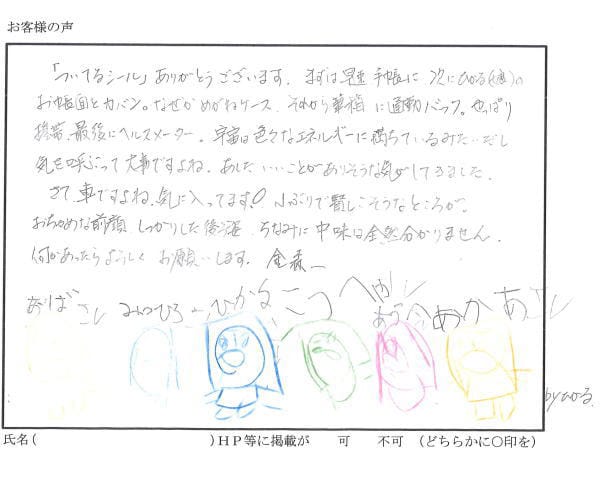 お客様の声
「ついてるシール」ありがとうございます。まずは早速手帳に 次にひかる(息)の
お帳面とカバン。なぜかめがねケース、それから 箱に通勤バッグ。やっぱり
携帯、最後にヘルスメーター。宇宙は色々なエネルギーに満ちているみたいだし
気を呼ぶって大事ですよね。あしたいいことがありそうな気がしてきました。
さて、車ですよね、気に入ってます!小ぶりで賢こそうなところが。
おちゃめな前顔、しっかりした後ろ姿、ちなみに中味は全然分かりません。
何かあったらよろしくお願いします。
byひかる
氏名( )HP等に掲載が 可 不可 (どちらかに○印を)